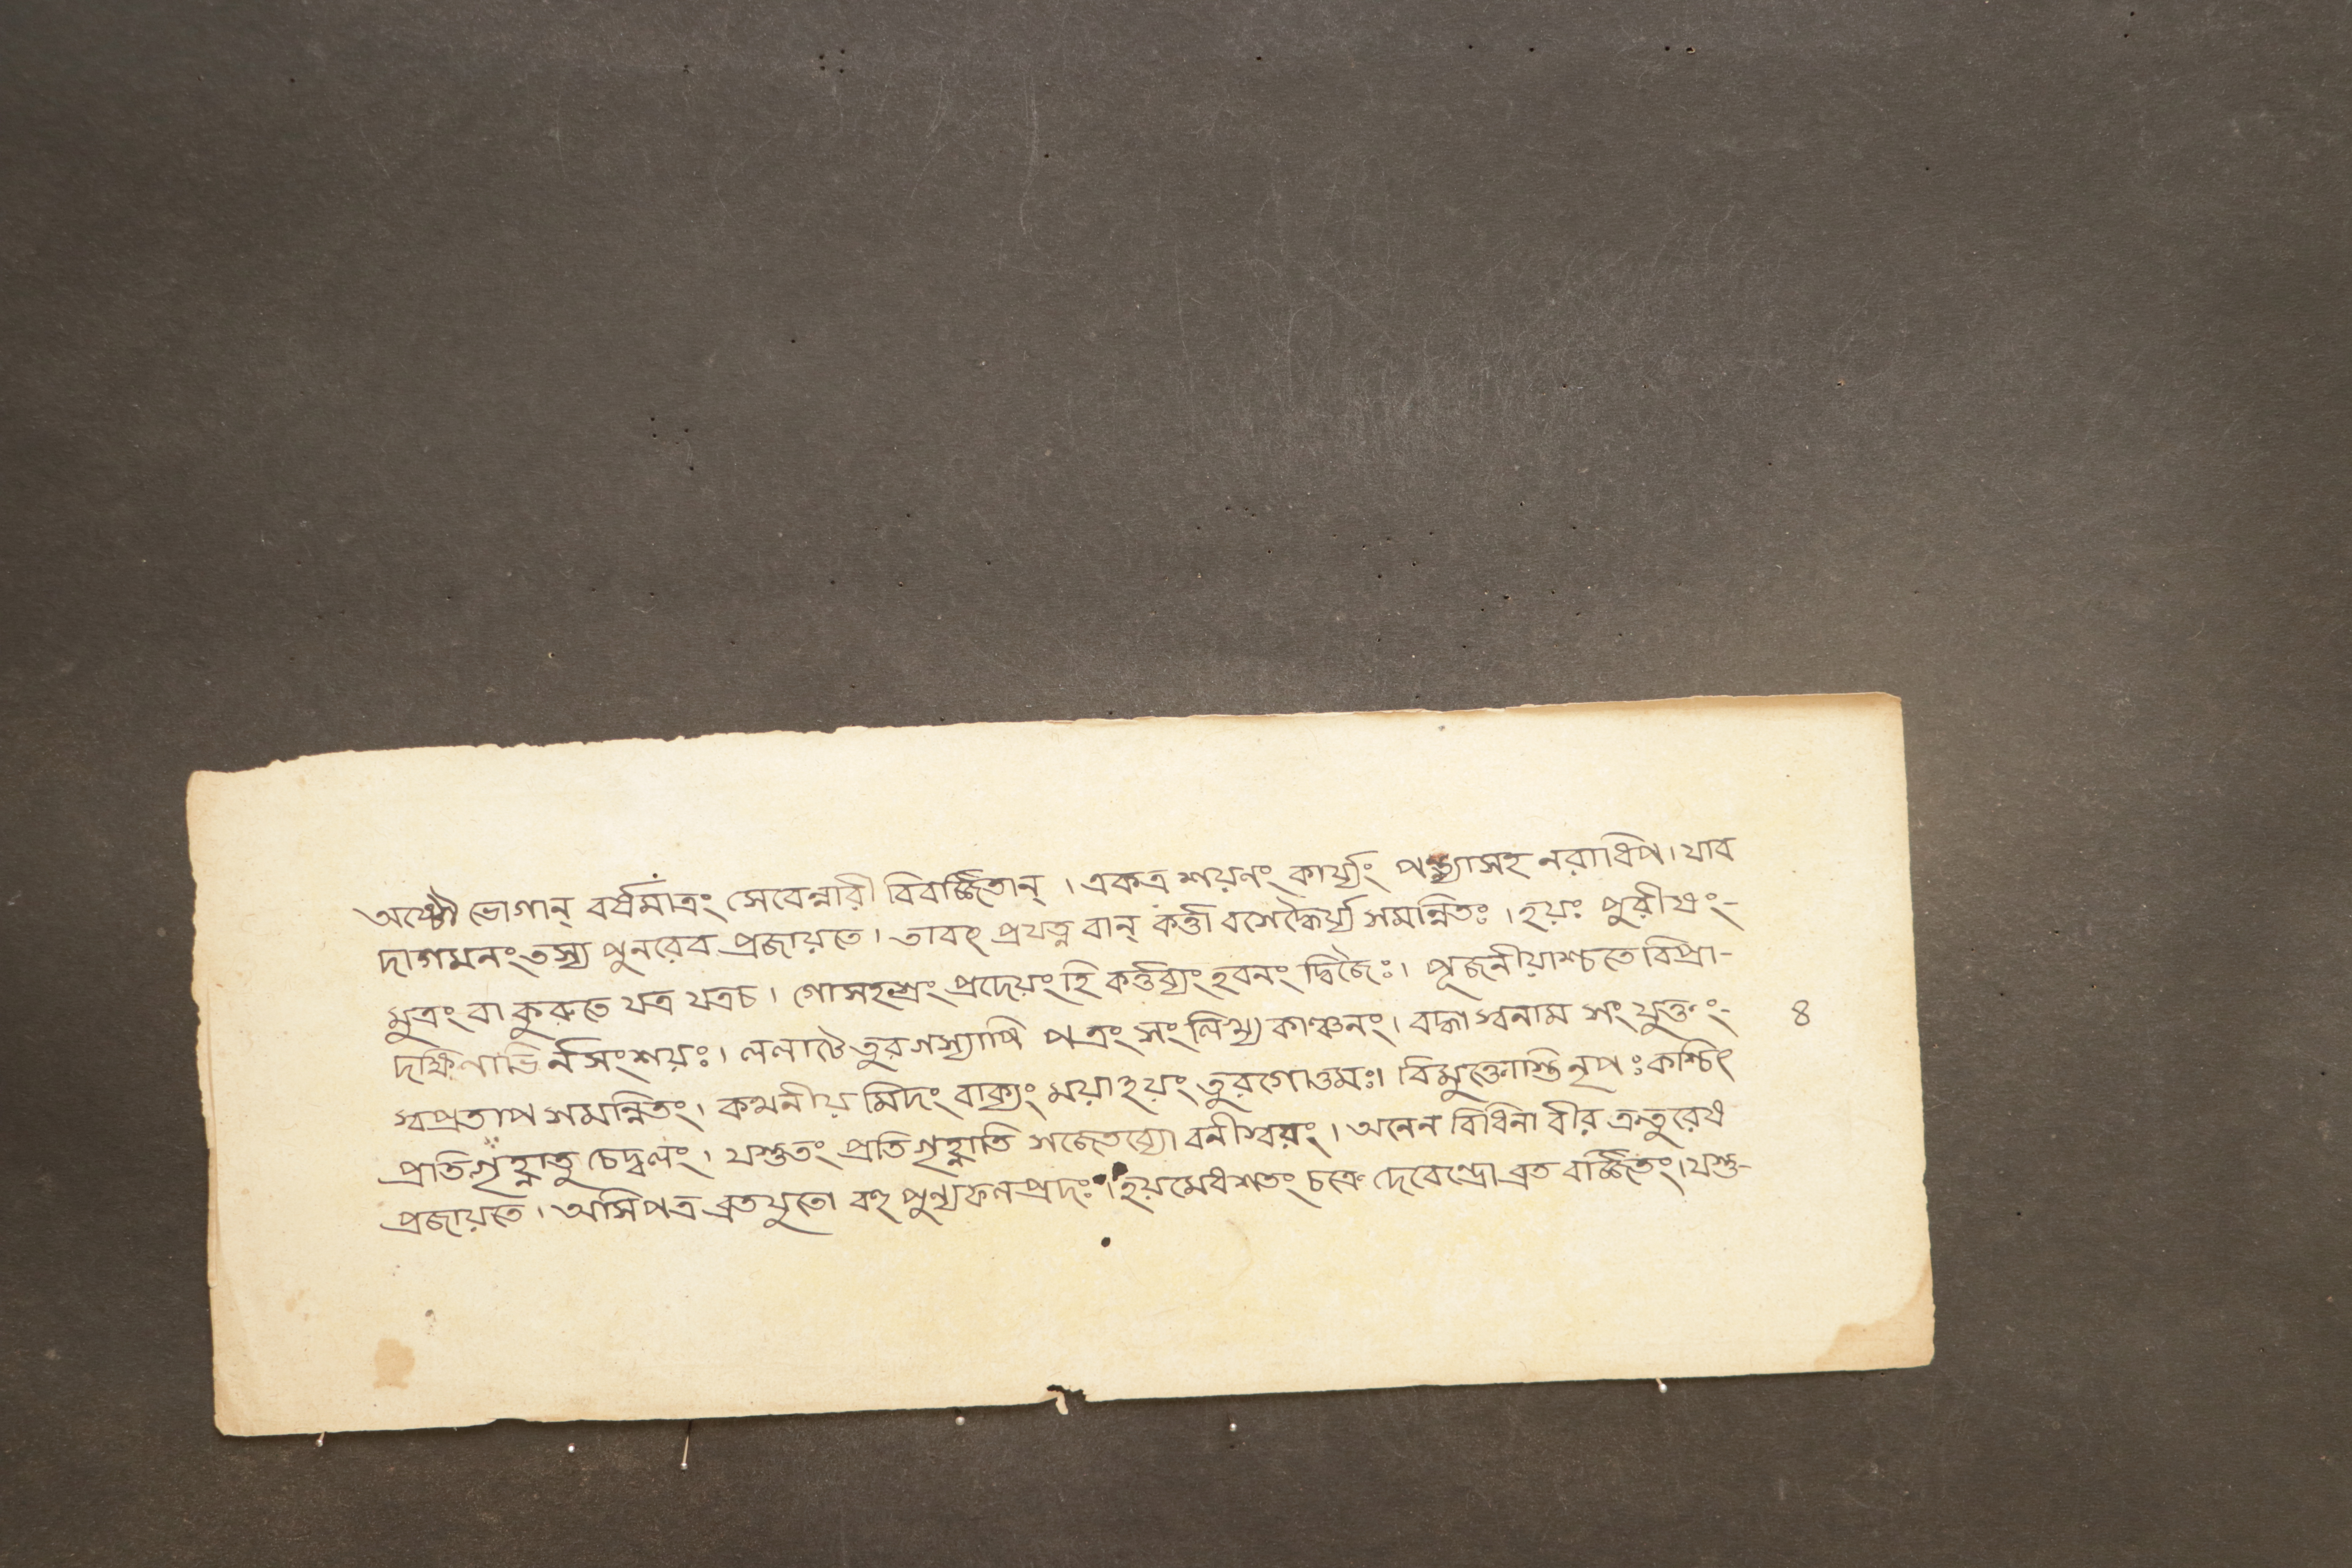 অষ্টৌ ভোগান্ বর্ষমাত্রং সেবেন্নারী বিবর্জ্জিতান্ । একত্র শয়নং কার্য্যং পত্ন্যাসহ নরাধিপ। যাব
দাগমনং তস্য পুনরেব প্রজায়তে। তাবৎ প্রযত্ন বান্ কর্ত্তা বসেদ্ধৈর্য্য সমন্নিতঃ। হয়ঃ পুরীষং-
মুত্রং বা কুরুতে যত্র যত্রচ। গোসহশ্রং প্রদেয়ং হি কর্ত্তব্যং হবনং দ্বিজৈঃ। পূজনীয়াশ্চতে বিপ্রা-
দক্ষিণাভি র্নসংশয়ঃ। ললাটে তুরগস্যাপি পত্রং সংলিখ্য কাঞ্চনং। বদ্ধা স্বনাম সংযুক্তং- ৪
স্বপ্রতাপ সমন্নিতং। কথনীয় মিদং বাক্যং ময়াহয়ং তুরগোত্তমঃ। বিমুক্তোস্তি নৃপঃ কশ্চিৎ
প্রতিগৃহ্ণাতু চেদ্বলং। যস্তুতং প্রতিগৃহ্ণাতি সজেতব্যো বর্নস্বিরং। অনেন বিধিনা বীর ক্রতুরেষ
প্রজায়তে। অসিপত্র ব্রতযুতো বহু পুন্যফলপ্রদঃ। হয়মেধশতং চক্রে দেবেন্দ্রো ব্রত বর্জ্জিতং। যস্তু-